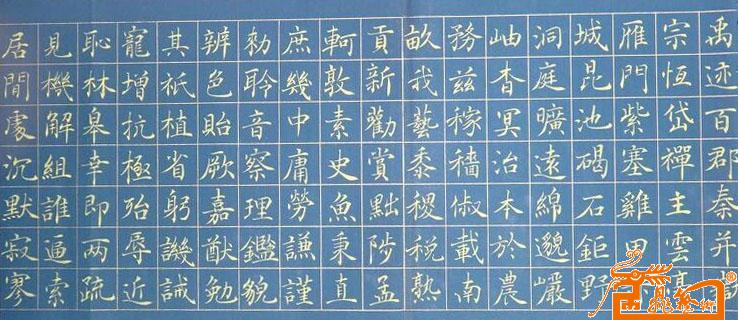 禹迹百郡秦并
宗恒岱禪主雲
雁門紫塞雞田
城昆池碣石鉅野
洞庭曠遠綿邈巖
岫杳冥治本於農
務茲稼穡俶載南
畝我藝黍稷稅熟
貢新勸賞黜陟孟
軻敦素史魚秉直
庶幾中庸勞謙謹
勑聆音察理鑑貌
辨色貽厥嘉猷勉
其祗植省躬譏誡
寵增抗極殆辱近
恥林皋幸即两疏
見機解組誰逼索
居閒處沉默寂寥